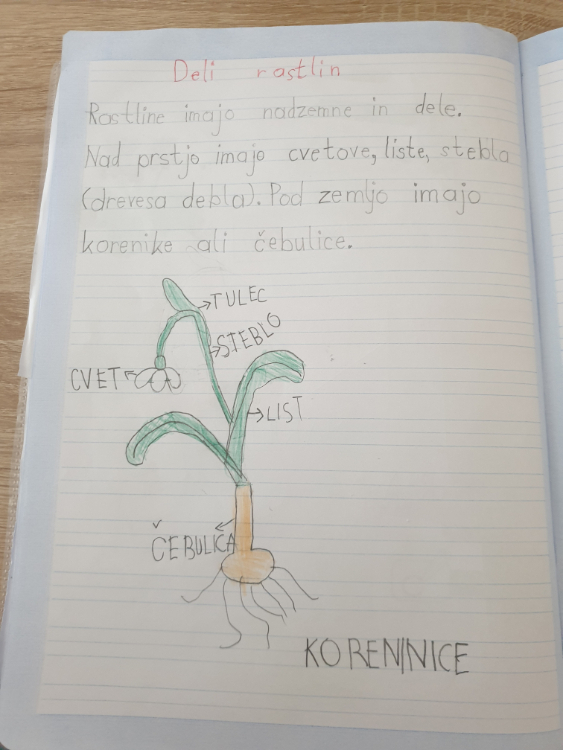 Deli rastlin
Rastline imajo nadzemne in dele.
Nad prstjo imajo cvetove, liste, stebla
(drevesa debla). Pod zemljo imajo
korenike ali čebulice.
TULEC
STEBLO
CVET
LIST
ČEBULICA
KORENINICE